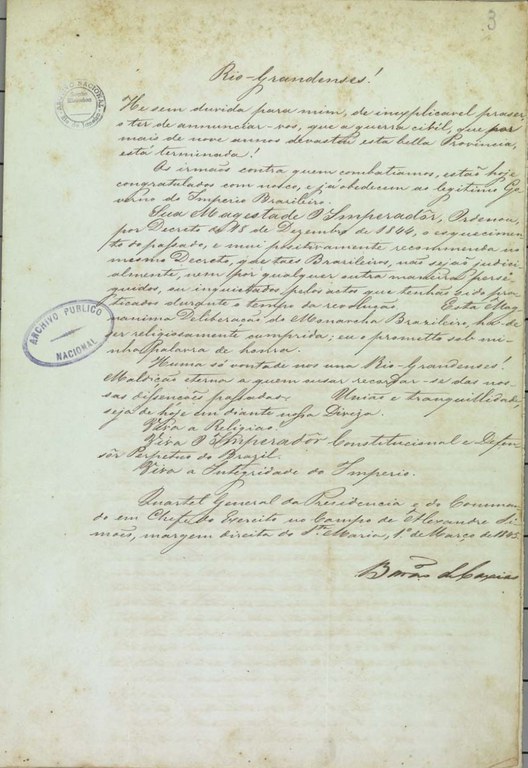 3
ARCHIVO NACIONAL
Rio-Grandenses!
He sem duvida para mim, de inexplicavel praser,
o ter de annunciar-vos, que a guerra civil, que por
mais de nove annos devastou esta bella Provincia,
está terminada!
Os irmãos contra quem combatiamos, estão hoje
congratulados comnosco, e já obedecem ao legitimo Go
verno do Imperio Brasileiro.
Sua Magestade O Imperadôr, Ordenou,
por Decreto de 18 de Dezembro de 1844, o esquecimen
to do passado, e mui positivamente recommenda no
mesmo Decreto, que taes Brasileiros, não sejaõ judici
almente, nem por qualquer outra maneira perse
guidos, ou inquietados pelos actos que tenhão sido pra
ticados durante o tempo da revolução. Esta Mag
nanima Deliberação do Monarcha Brasileiro, ha de
ser religiosamente cumprida; eu o prometto sob mi
nha palavra de honra.
Huma só vontade nos una Rio-Grandenses!
Maldição eterna a quem ousar recordar-se das nos
sas disenções passadas. União e tranquillidade,
seja de hoje em diante nossa Diviza.
Viva a Religião.
Viva O Imperadôr Constitucional e Defen
sôr Perpetuo do Brazil.
Viva a Integridade do Imperio.
Quartel General da Presidencia e do Comman
do em Chefe do Exercito no Campo de Alexandre Si
mões, margem direita do Sta Maria, 1º de Março de 1845.
Barão de Caxias
ARCHIVO PUBLICO
NACIONAL